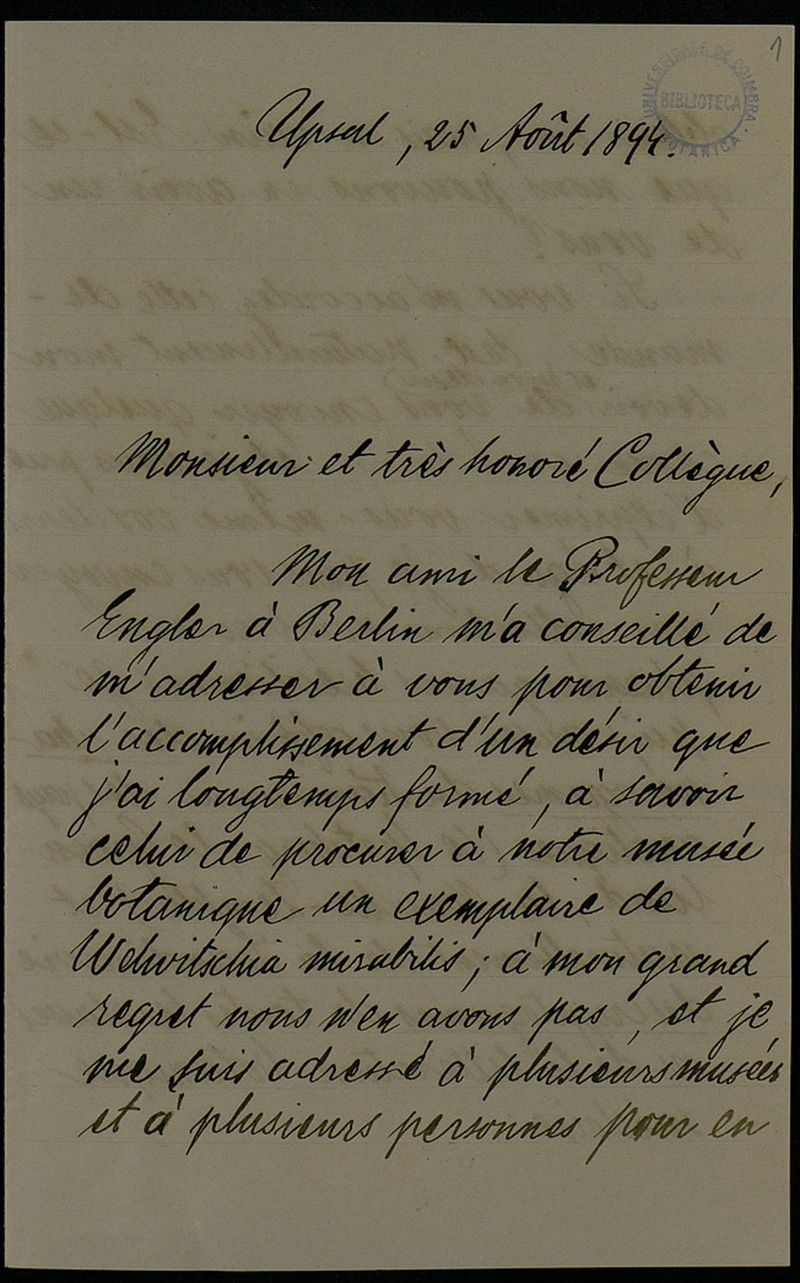 1
UNIVERSIDADE DE COIMBRA
BIBLIOTECA
BOTANICA
Upsal, 25 Août 1894.
Monsieur et très honoré Collègue,
Mon ami le Professeur
Engler à Berlin m'a conseillé de
m'adresser à vous pour obtenir
l'accomplissement d'un désir que
j'ai longtemps formé, à savoir
celui de procurer à notre musée
botanique un exemplaire de
Welwitschia mirabilis; à mon grand
regret nous n'en avons pas, et je
me suis adressé à plusieurs musées
et à plusieurs personnes pour en